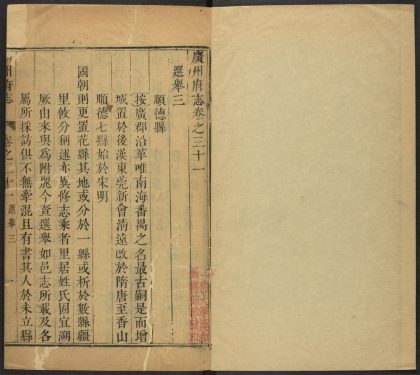 廣州府志卷之三十一
選舉三
順德縣
按廣郡沿革唯南海番禺之名最古嗣是而增
城置於後漢東莞新會清遠改於隋唐至香山
順德七縣始於宋明
國朝則更置花縣其地或分於一縣或析於數縣疆
里攸分稱述亦異修志乘者里居姓氏固宜溯
厥由來與為附麗今查選舉如邑志所載及各
屬所採訪俱不無牽混且有書其人於未立縣
州府志
卷之三十一
選舉三
一